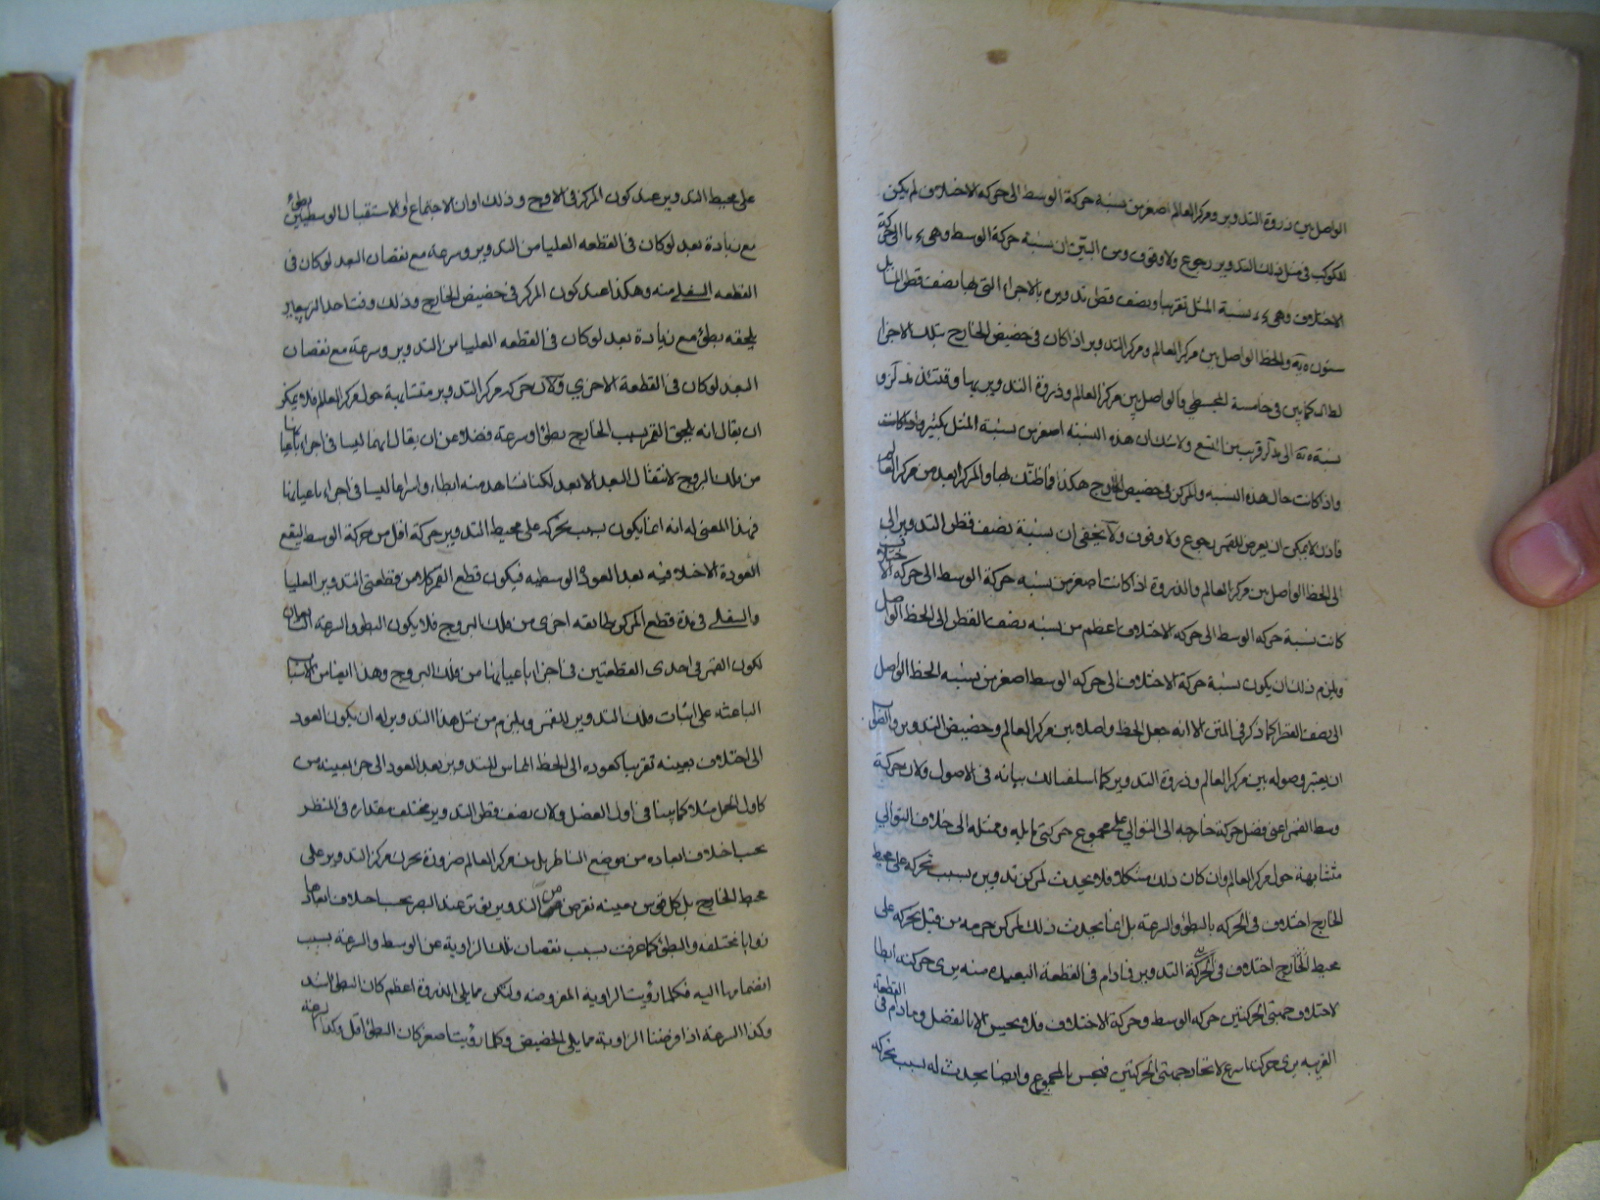 الواصل بين ذروة التدوير ومركز العالم اصغر من نسبة حركة الوسط الى حركة الاختلاف لم يكن
للكوكب في مثل ذلك التدوير رجوع ولا وقوف ومن البين ان نسبة حركة الوسط وهي الى حركة
الاختلاف وهي نسبة المثل تقريبا ونصف قطر تدويره بالاجزاء التي بها نصف قطر المايل
ستون والخط الواصل بين مركز العالم ومركز التدوير اذا كان في حضيض الخارج بتلك الاجزا
كما بين في خامسة المجسطي والواصل بين مركز العالم وذروة التدوير بها
نسبة الى قريب من التسع ولا شك ان هذه النسبة اصغر من نسبة المثل بكثير
واذا كانت حال هذه النسبة والمركز في حضيض الخارج هكذا فما ظنك بها والمركز ابعد من مركز العالم
فاذن لا يمكن ان يعرض للقمر رجوع ولا وقوف ولا يخفى ان نسبة نصف قطر التدوير الى
الى الخط الواصل بين مركز العالم والذروة اذا كانت اصغر من نسبة حركة الوسط الى حركة الاختلاف
كانت نسبة حركة الوسط الى حركة الاختلاف اعظم من نسبة نصف القطر الى الخط الواصل
ويلزم ذلك ان يكون نسبة حركة الاختلاف الى حركة الوسط اصغر من نسبة الخط الواصل
الى نصف القطر كما ذكر في المتن الا انه جعل الخط واصلا بين مركز العالم وحضيض التدوير
ان يعتبر وصوله بين مركز العالم وذروة التدوير كما اسلفنا لك بيانه في الاصول ولان حركة
وسط القمر اعني فضل حركة خارجه الى التوالي على مجموع حركتي مايله وممثله الى خلاف التوالي
متشابهة حول مركز العالم وان كان ذلك مشكلا فلا يحدث لمركز تدويره بسبب تحركه على محيط
الخارج اختلاف في الحركة بالبطؤ والسرعة بل انما يحدث ذلك لمركز جرمه من قبل تحركه على
محيط الخارج اختلاف في الحركة التدوير فما دام في القطعة البعيدة منه يرى حركته ابطا
لاختلاف جهتي الحركتين حركة الوسط وحركة الاختلاف فلا يحس الا بالفضل وما دام في القطعة
القريبة يرى حركته اسرع لاتحاد جهتي الحركتين فيحس بالمجموع وايضا يحدث له بسبب تحركه
على محيط التدوير عند كون المركز في الاوج وذلك اوان الاجتماع او الاستقبال الوسطيين بطؤ
مع زيادة بعد لو كان في القطعة العليا من التدوير وسرعة مع نقصان البعد لو كان في
القطعة السفلى منه وهكذا عند كون المركز في حضيض الخارج وذلك وقتا احد التربيعين
يلحقه بطؤ مع زيادة بعد لو كان في القطعة العليا من التدوير وسرعة مع نقصان
البعد لو كان في القطعة الاخرى ولان حركة مركز التدوير متشابهة حول مركز العالم فلا يمكن
ان يقال انه يلحق القمر بسبب الخارج بطؤ او سرعة فضلا عن ان يقال انهما ليسا في اجزاء باعيانها
من فلك البروج لانتقال البعد الابعد لكنا نشاهد منه ابطاء واسراعا ليسا في اجزاء باعيانها
فهذا المعنى له انه انما يكون بسبب تحركه على محيط التدوير حركة اقل من حركة الوسط ليقع
العودة الاختلافية بعد العودة الوسطية فيكون قطع القمر كلا من قطعتي التدوير العليا
والسفلى في مدة قطع المركز طايفة اخرى من فلك البروج فلا يكون البطؤ والسرعة
لكون القمر في احدى القطعتين في اجزاء باعيانها من فلك البروج وهذا ايضا من الاسباب
الباعثة على اثبات فلك التدوير للقمر ويلزم من مثل هذا التدوير له ان يكون العود
الى اختلاف بعينه تقريبا كعوده الى الخط المماس للتدوير بعد العود الى جزء بعينه من
كاول الحمل مثلا كما بينا في اول الفصل ولان نصف قطر التدوير مختلف مقداره في المنظر
بحسب اختلاف ابعاده من موضع الناظر بل من مركز العالم ضرورة تحرك مركز التدوير على
محيط الخارج بل كل قوس بعينه تفرض من التدوير يوتر عند البصر بحسب اختلاف ابعادها
زوايا مختلفة والبطؤ كما عرفت بسبب نقصان تلك الزاوية عن الوسط والسرعة بسبب
انضمامها اليه فكلما رؤيت الزاوية المفروضة ولتكن مما يلي الذروة اعظم كان البطؤ اشد
وكذا السرعة اذا فرضنا الزاوية مما يلي الحضيض وكلما رؤيت اصغر كان البطؤ اقل وكذا السرعة